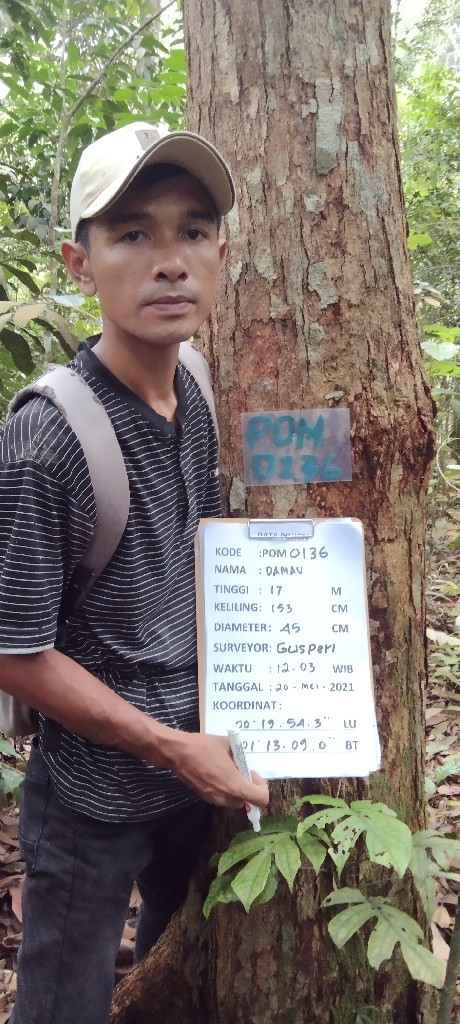 POM
0136
DATA POHON
KODE :POM 0136
NAMA : DAMAU
TINGGI : 17 M
KELILING: 153 CM
DIAMETER: 45 CM
SURVEYOR: Gusperi
WAKTU : 12.03 WIB
TANGGAL : 20 - Mei - 2021
KOORDINAT:
00° 19. 54. 3" LU
01° 13. 09. 0" BT